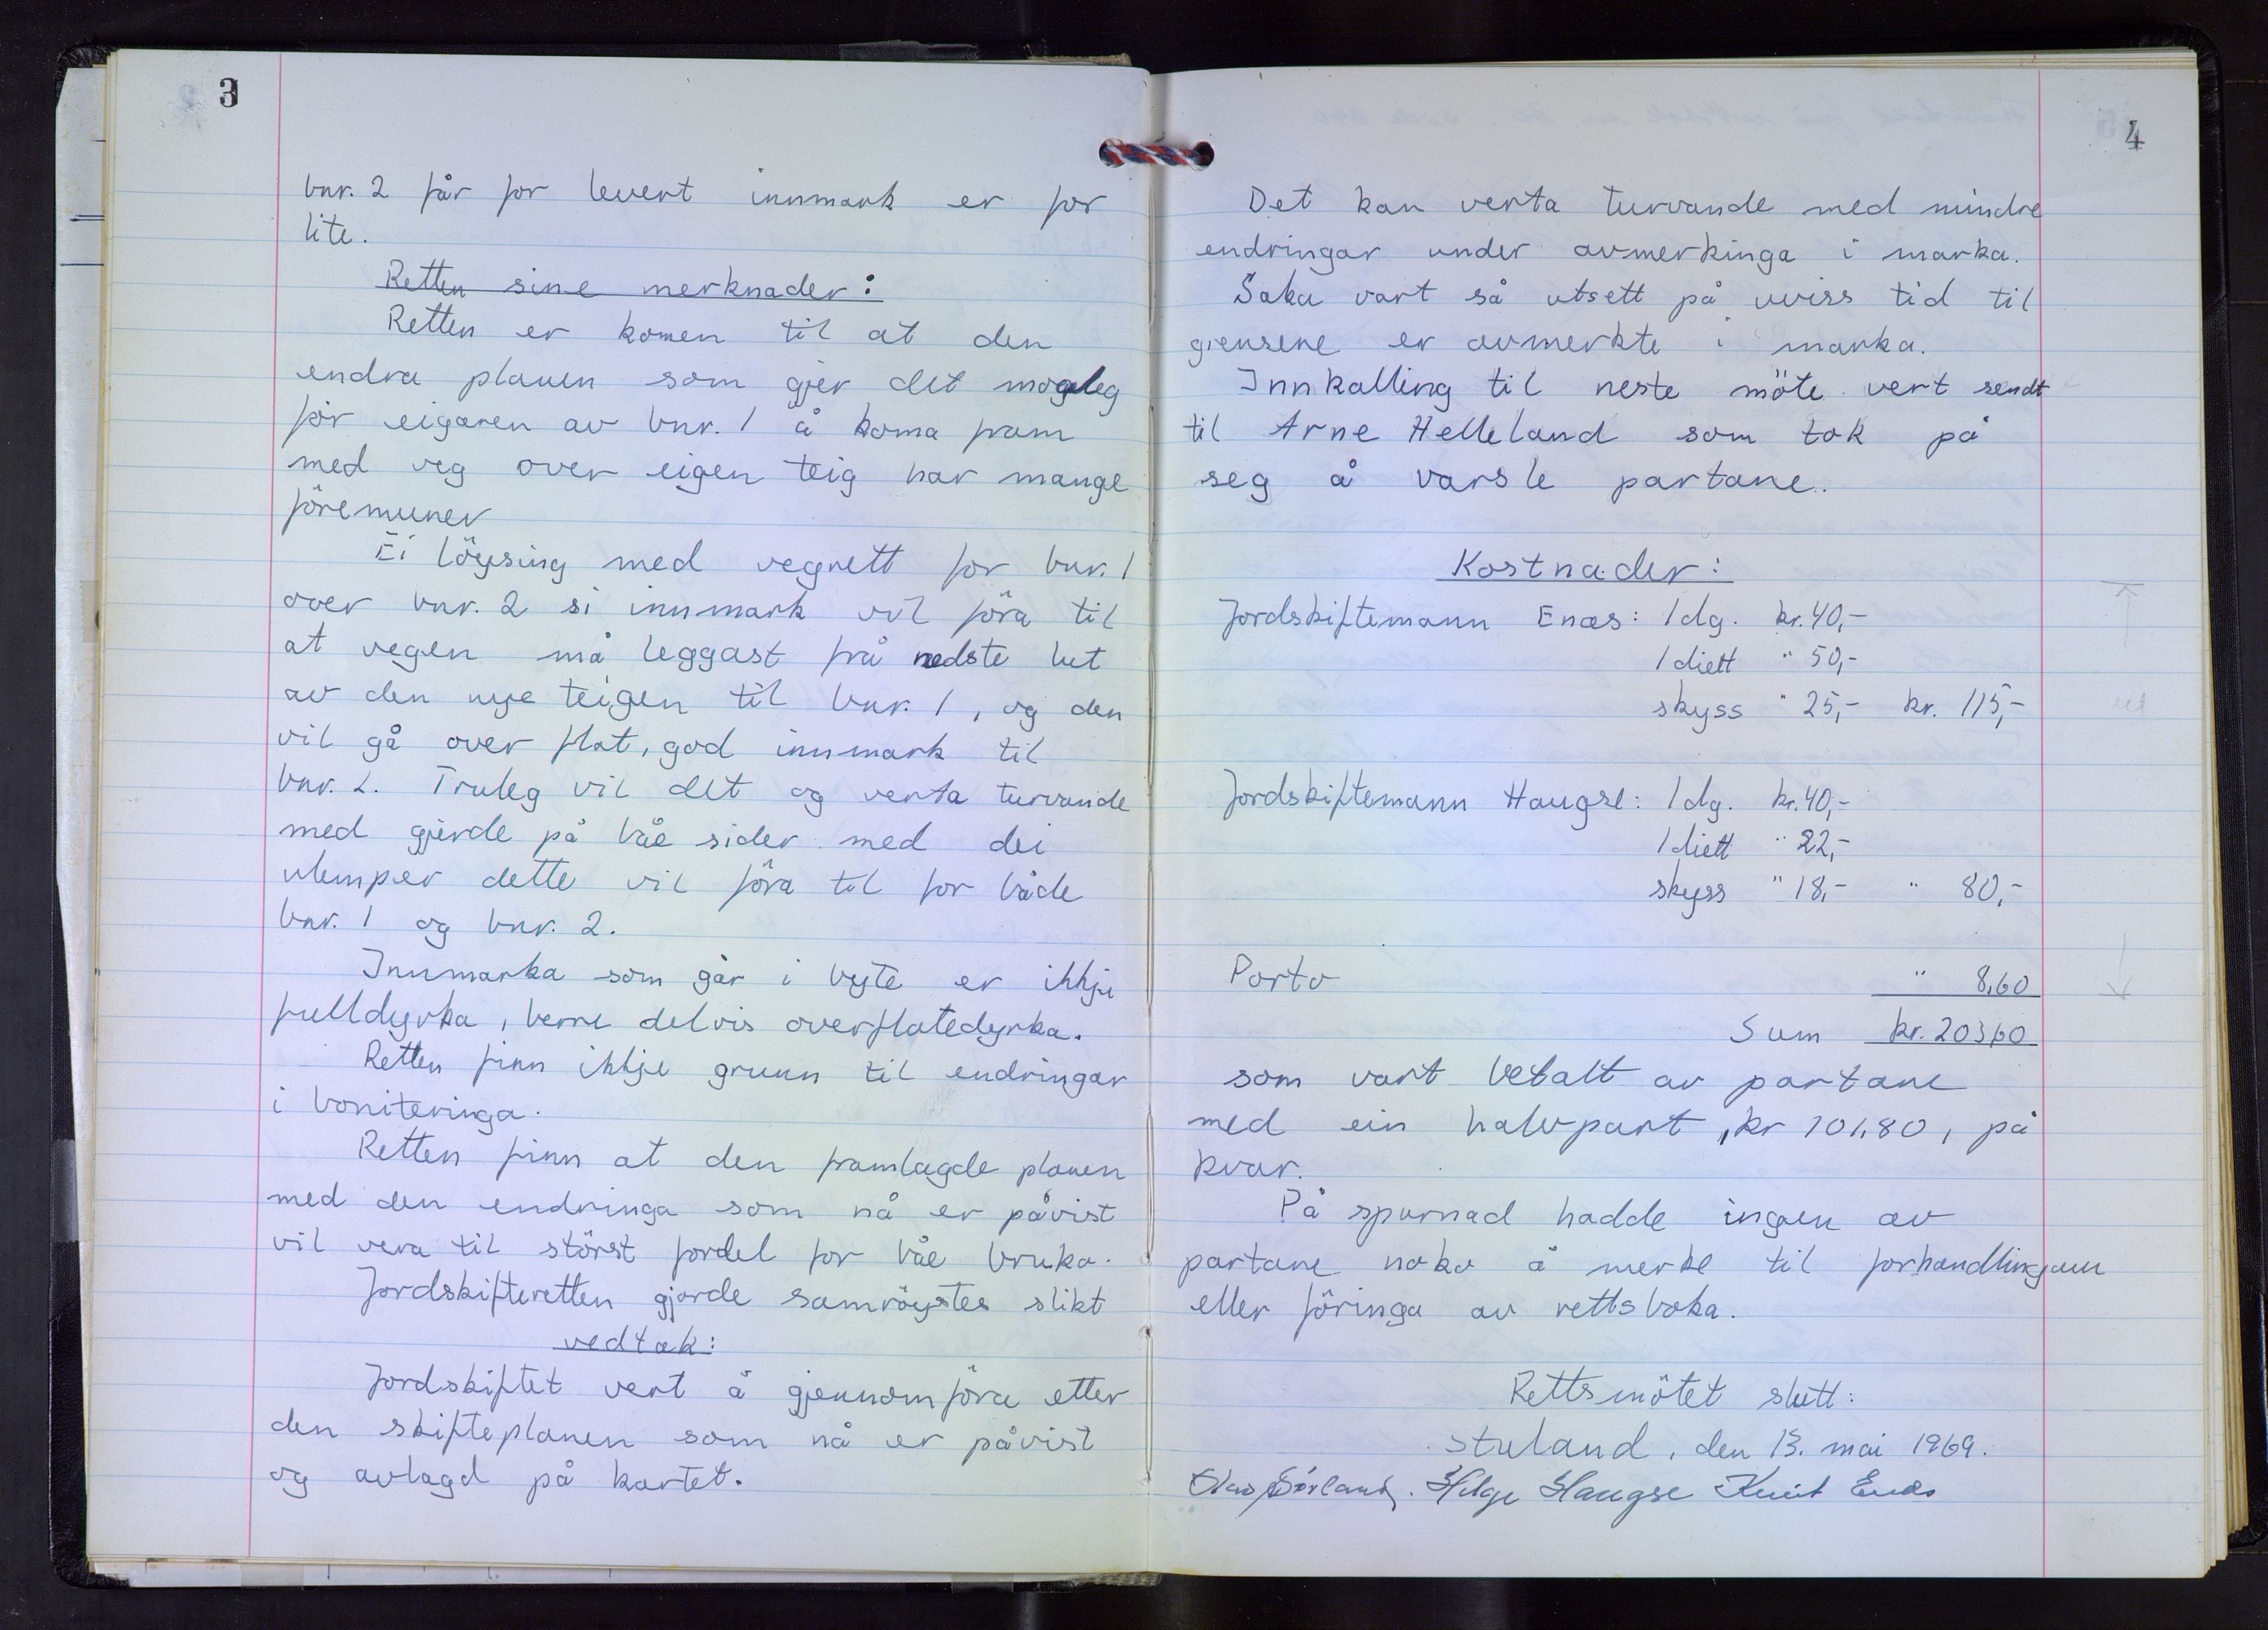 3
bnr. 2 får for levert innmark er for
lite.
Retten sine merknader:
Retten er komen til at den
endra planen som gjer det mogeleg
för eigaren av bnr. 1 å koma fram
med veg over eigen teig har mange
föremuner
Ei löysing med vegrett for bnr. 1
over bnr. 2 si innmark vil föra til
at vegen må leggast frå nedste lut
av den nye teigen til bnr. 1, og den
vil gå over flat, god innmark til
bnr. 2. Truleg vil det og verta turvande
med gjerde på båe sider med dei
ulemper dette vil föra til for både
bnr. 1 og bnr. 2.
Innmarka som går i byte er ikkje
fulldyrka, berre delvis overflatedyrka.
Retten finn ikkje grunn til endringar
i boniteringa.
Retten finn at den framlagde planen
med den endringa som nå er påvist
vil vera til störst fordel for båe bruka.
Jordskifteretten gjorde samröystes slikt
vedtak:
Jordskiftet vert å gjennomföra etter
den skifteplanen som nå er påvist
og avlagd på kartet.
4
Det kan verta turvande med mindre
endringar under avmerkinga i marka.
Saka vart så utsett på uviss tid til
grensene er avmerkte i marka.
Innkalling til neste möte vert sendt
til Arne Helleland som tok på
seg å varsle partane.
Kostnader:
Jordskiftemann Enæs: 1 dg. kr. 40,-
1 diett " 50,-
skyss " 25,- kr. 115,-
Jordskiftemann Haugse: 1 dg. kr. 40,-
1 diett " 22,-
skyss " 18,- " 80,-
Porto " 8,60
Sum kr. 203,60
som vart betalt av partane
med ein halvpart, kr 101,80, på
kvar.
På spurnad hadde ingen av
partane noko å merke til forhandlingane
eller föringa av rettsboka.
Rettsmötet slutt:
Stuland, den 13. mai 1969.
Helge Haugse Knut Enes